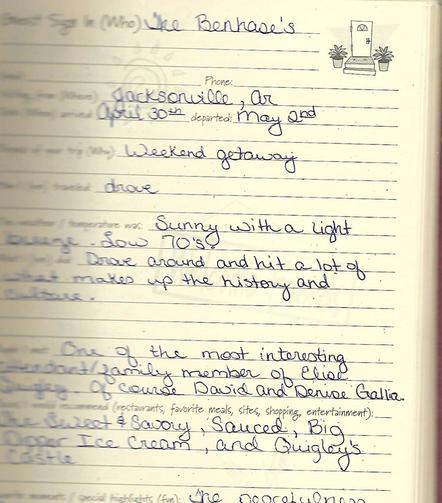 Guest Sign In (Who) The Benhase's
Phone:
Jacksonville, Ar
April 30th departed: May 2nd
of your trip (Why) Weekend getaway
traveled: drove
temperature was: Sunny with a light
breeze. Low 70's.
Drove around and hit a lot of
what makes up the history and
culture.
One of the most interesting
/family member of Elise
Quigley. Of course David and Denise Gallia.
recommend (restaurants, favorite meals, sites, shopping, entertainment):
Sweet & Savory, Sauced, Big
Dipper Ice Cream, and Quigley's
Castle
moments / special highlights (fun): The peacefulness